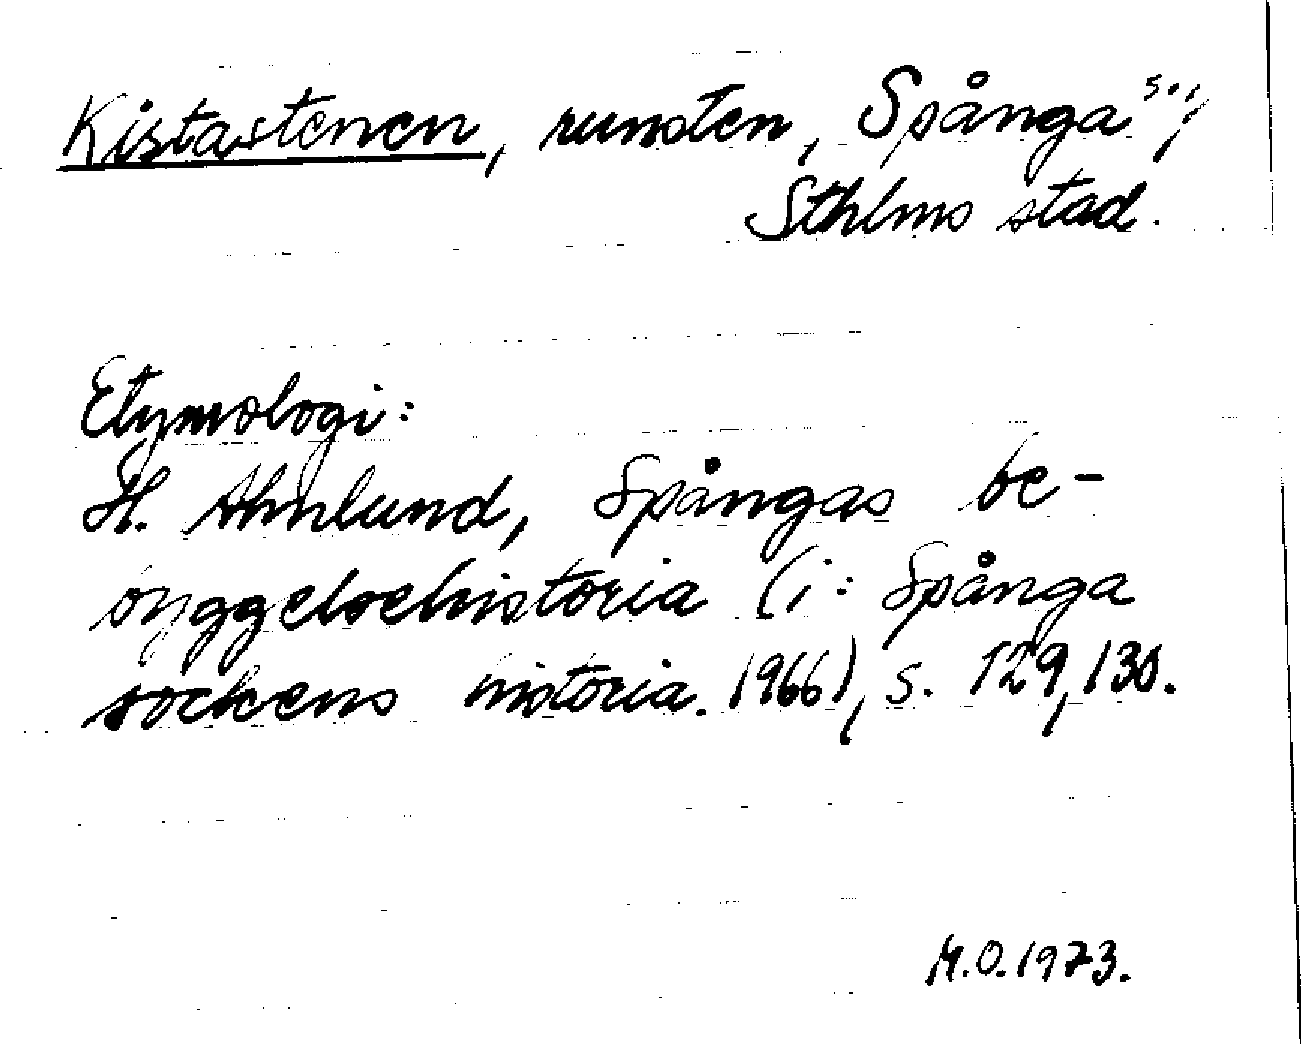 Kistastenen, runsten, Spånga s:n,
Sthlms stad.
Etymologi:
H. Ahnlund, Spångas be-
byggelsehistoria (i: Spånga
sockens historia. 1966), s. 129, 130.
M.O. 1973.